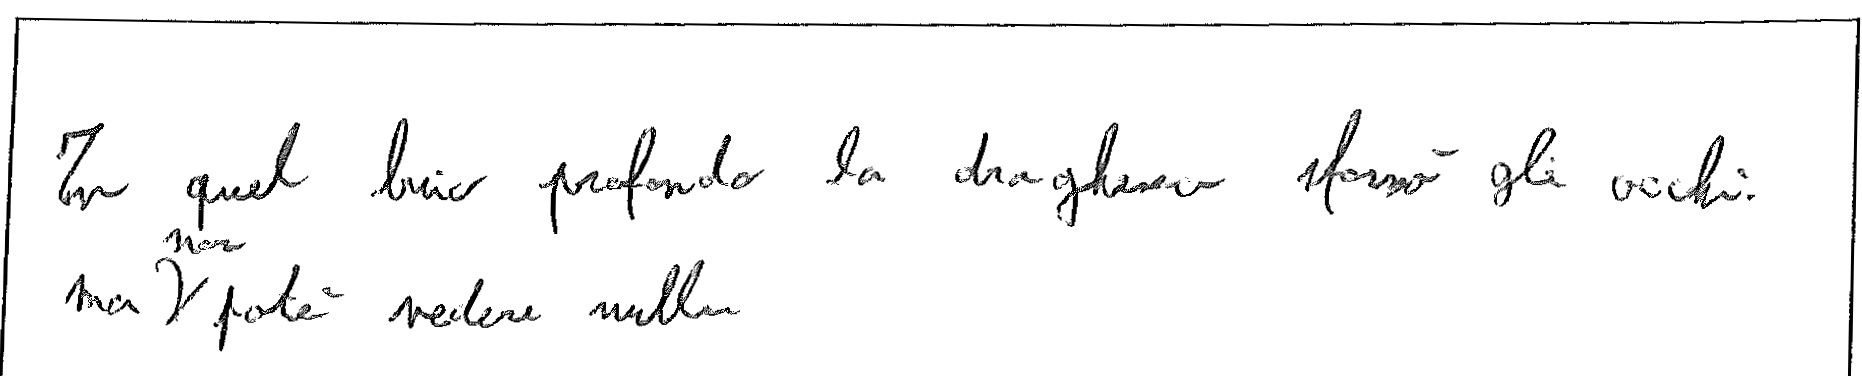 In quel buio profondo la draghessa sforzò gli occhi.
ma non potè vedere nulla